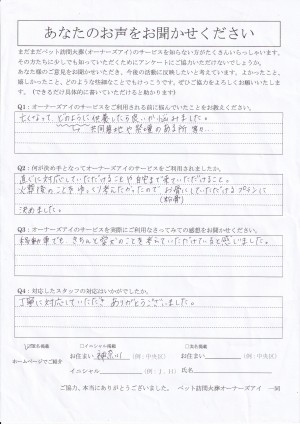 あなたのお声をお聞かせください
まだまだペット訪問火葬（オーナーズアイ）のサービスを知らない方がたくさんいらっしゃいます。
その方たちに少しでも知っていただくためにアンケートにご協力いただけないでしょうか。
あなた様のご意見をお聞かせいただき、今後の活動に反映したいと考えています。よかったこと、
嬉しかったこと、どのような些細なことでもけっこうです。ぜひご協力をよろしくお願いいたします。
（できるだけ具体的に書いていただけると助かります）
Q1：オーナーズアイのサービスをご利用される前に悩んでいたことをお教えください。
亡くなって、どのように供養したら良いか悩みました。
共同墓地や祭壇のある所
Q2：何が決め手となってオーナーズアイのサービスをご利用されましたか。
直ぐに対応していただけることや自宅まで来ていただけること。
火葬後のことをゆっくり考えたかったので お骨にしていただけるプランに
決めました。
Q3：オーナーズアイのサービスを実際にご利用になってみての感想をお聞かせください。
移動車でも きちんと のことを考えていただけていると感じました。
Q4：対応したスタッフの対応はいかがでしたか。
丁寧に対応していただき ありがとうございました。
匿名掲載 □イニシャル掲載 □実名掲載
ホームページでご紹介
お住まい 神奈川 （例：中央区） お住まい （例：中央区）
イニシャル （例：J．H） 氏名
ご協力、本当にありがとうございました。 ペット訪問火葬オーナーズアイ 一同